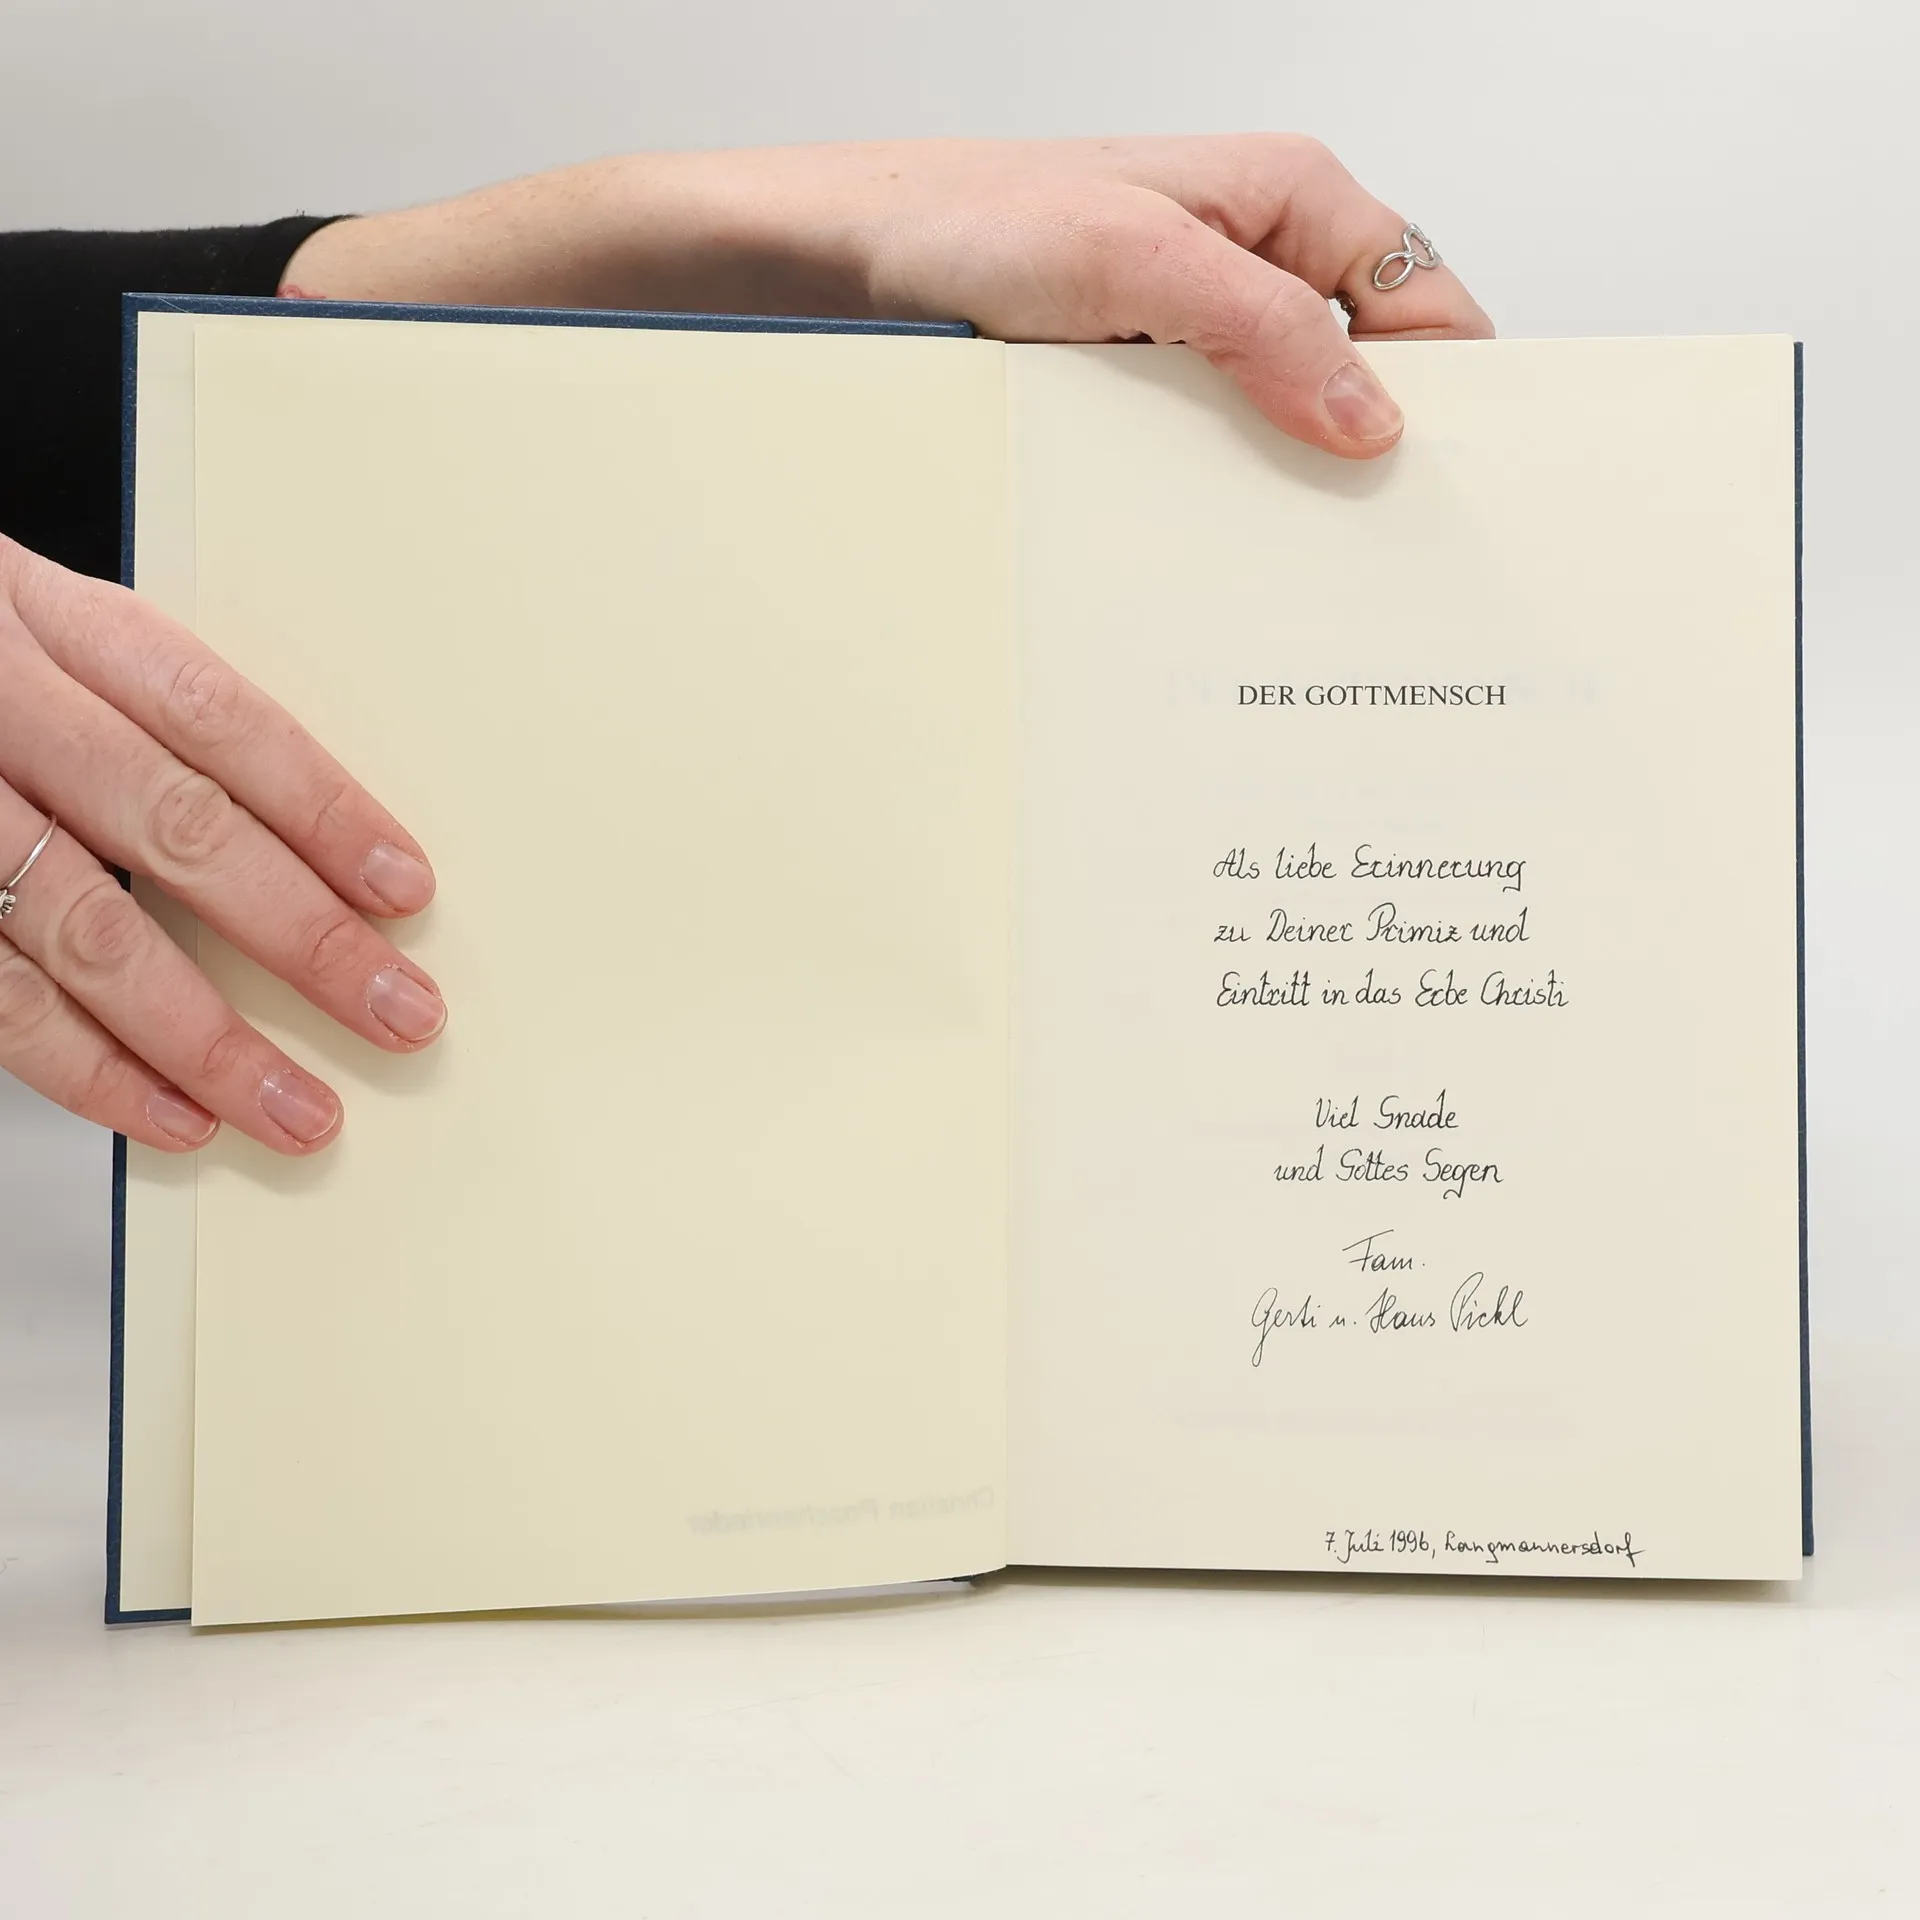 DER GOTTMENSCH
Als liebe Erinnerung
zu Deiner Primiz und
Eintritt in das Erbe Christi
Viel Gnade
und Gottes Segen
Fam.
Gerti u. Hans Pickl
7. Juli 1996, Langmannersdorf
Christian Poschenrieder